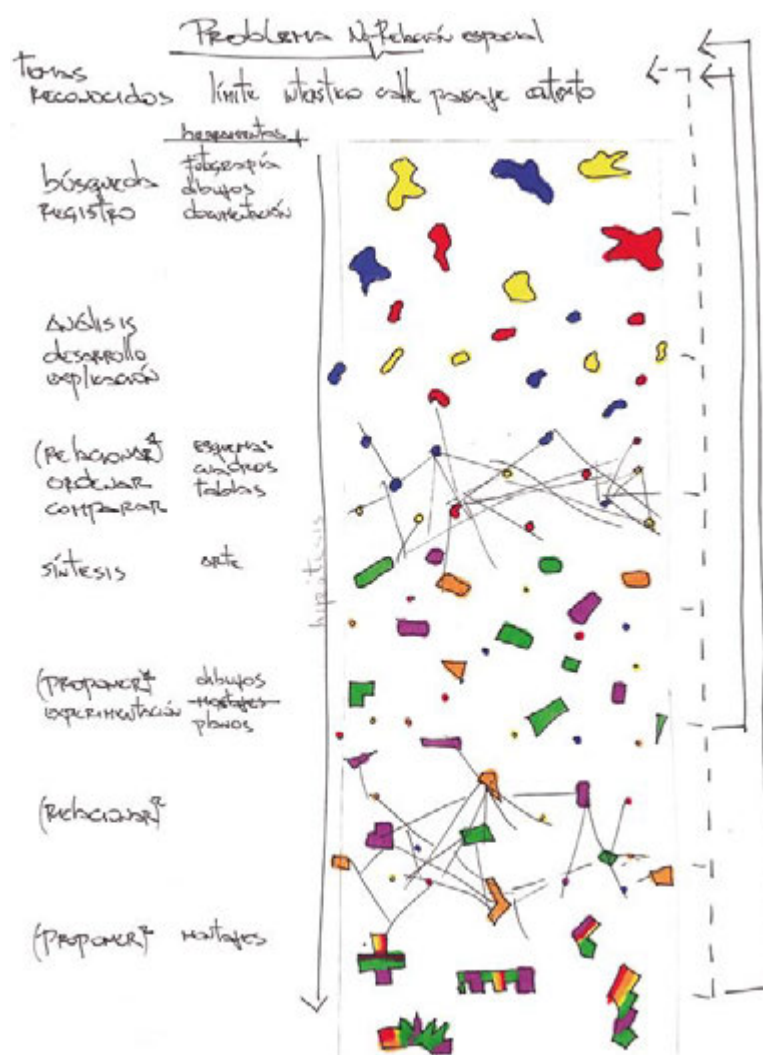 PROBLEMA No-Relación espacial
TEMAS
RECONOCIDOS límite intersticio calle pasaje contexto
herramientas
búsqueda fotografía
REGISTRO dibujos
documentación
ANÁLISIS
desarrollo
explicación
(RELACIONAR) esquemas
ORDENAR cuadros
COMPARAR tablas
SÍNTESIS ARTE
hipótesis
(PROPONER) dibujos
EXPERIMENTACIÓN montajes
planos
(RELACIONAR)
(PROPONER) montajes